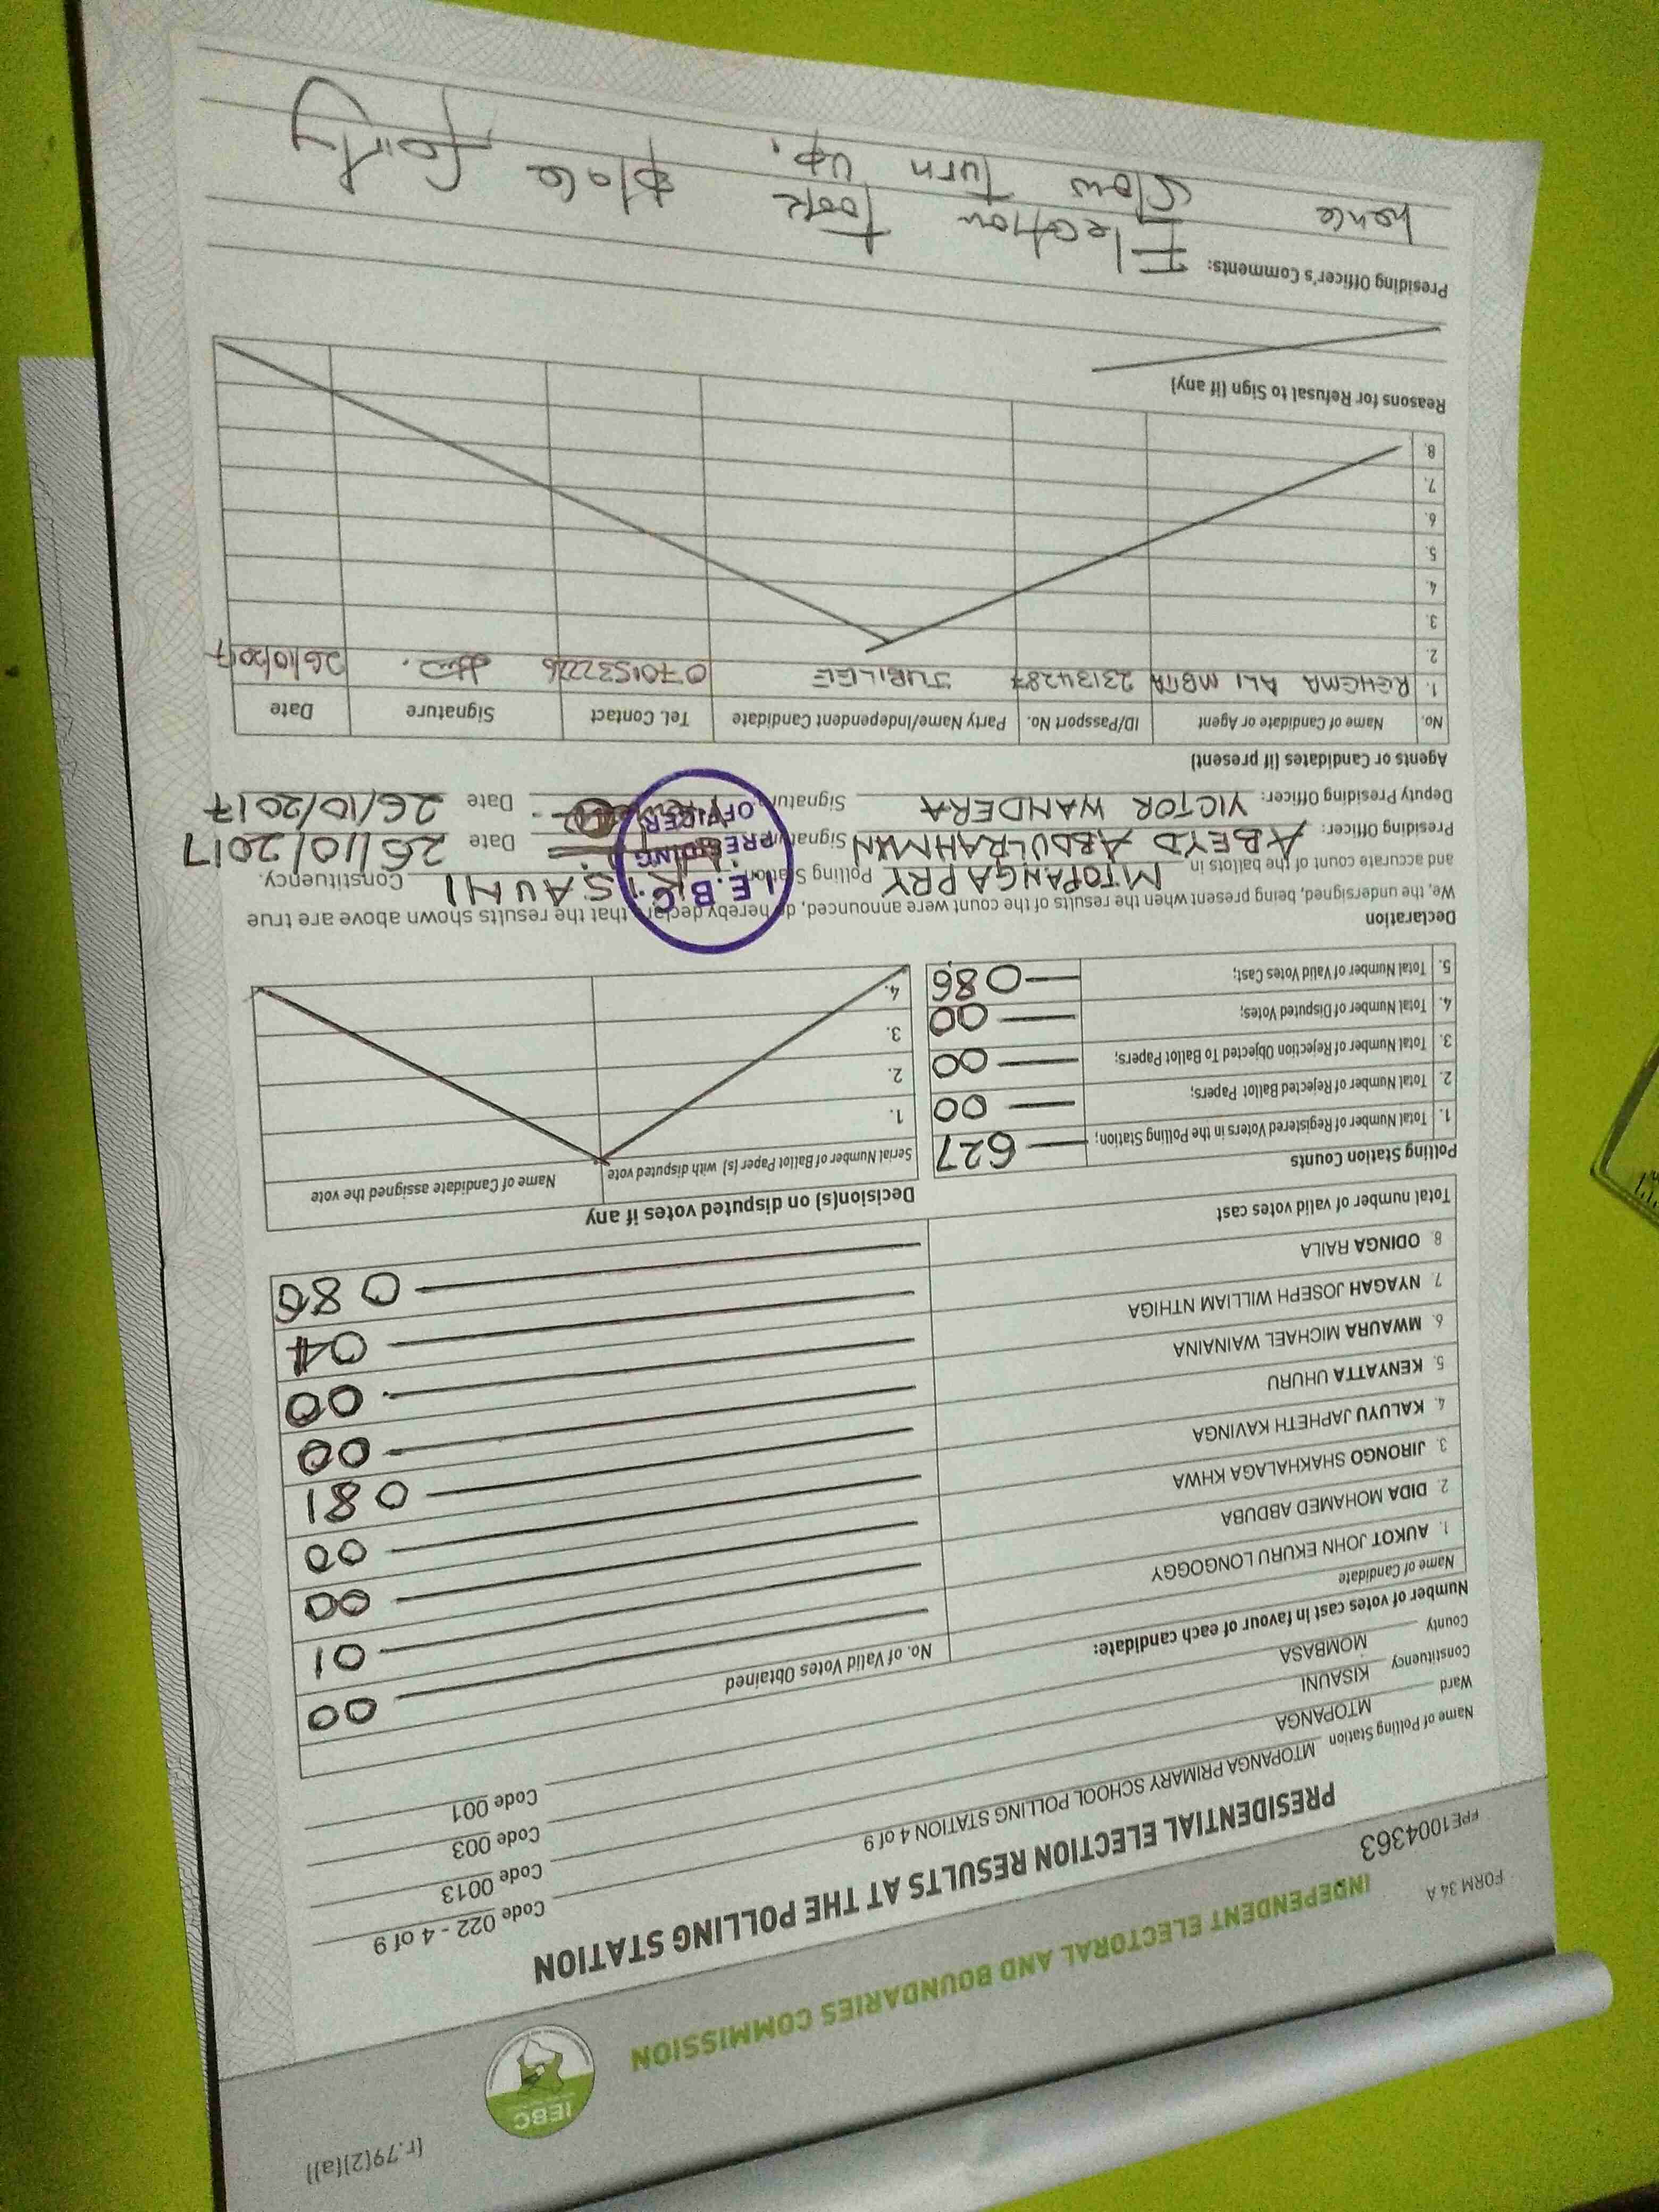 (r.79(2)(a))
IEBC
FORM 34 A
INDEPENDENT ELECTORAL AND BOUNDARIES COMMISSION
FPE1004363
PRESIDENTIAL ELECTION RESULTS AT THE POLLING STATION
Name of Polling Station MTOPANGA PRIMARY SCHOOL POLLING STATION 4 of 9 Code 022 - 4 of 9
Ward MTOPANGA Code 0013
Constituency KISAUNI Code 003
County MOMBASA Code 001
Number of votes cast in favour of each candidate:
Name of Candidate No. of Valid Votes Obtained
1. AUKOT JOHN EKURU LONGOGGY 00
2. DIDA MOHAMED ABDUBA 01
3. JIRONGO SHAKHALAGA KHWA 00
4. KALUYU JAPHETH KAVINGA 00
5. KENYATTA UHURU 081
6. MWAURA MICHAEL WAINAINA 00
7. NYAGAH JOSEPH WILLIAM NTHIGA 00
8. ODINGA RAILA 04
Total number of valid votes cast 086
Polling Station Counts
1. Total Number of Registered Voters in the Polling Station; 627
2. Total Number of Rejected Ballot Papers; 00
3. Total Number of Rejection Objected To Ballot Papers; 00
4. Total Number of Disputed Votes; 00
5. Total Number of Valid Votes Cast; 086
Decision(s) on disputed votes if any
Serial Number of Ballot Paper (s) with disputed vote Name of Candidate assigned the vote
1.
2.
3.
4.
Declaration
We, the undersigned, being present when the results of the count were announced, do hereby declare that the results shown above are true
and accurate count of the ballots in MTOPANGA PRY Polling Station KISAUNI Constituency.
Presiding Officer: ABEYD ABDULRAHMAN Signature Date 26/10/2017
Deputy Presiding Officer: VICTOR WANDERA Signature Date 26/10/2017
I.E.B.C.
PRESIDING
OFFICER
Agents or Candidates (if present)
No. Name of Candidate or Agent ID/Passport No. Party Name/Independent Candidate Tel. Contact Signature Date
1. REHEMA ALI MBITA 23134287 JUBILEE 0701532226 26/10/2017
2.
3.
4.
5.
6.
7.
8.
Reasons for Refusal to Sign (if any)
Presiding Officer's Comments: Election took place fairly
hence slow turn up.